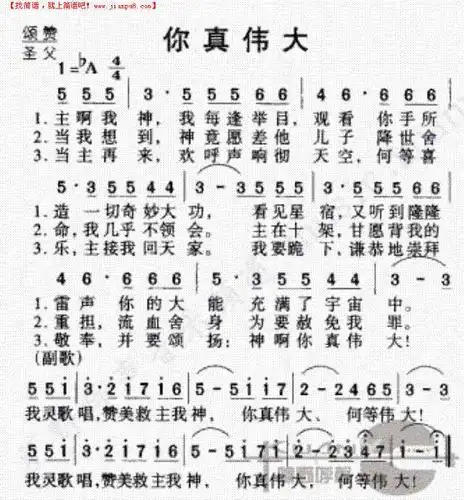 【找简谱，就上简谱吧！www.jianpu8.com】
颂赞
圣父
你真伟大
1=♭A 4/4
5 5 5 | 3 · 5 5 5 6 6 6 | 4 6 · 6 6 6
1. 主啊我 神，我每逢举目，观看 你手所
2. 当我想 到，神竟愿差他 儿子 降世舍
3. 当主再 来，欢呼声响彻 天空，何等喜
5 · 3 5 5 4 4 | 3 - 3 5 5 5 | 3 · 5 5 5 6 6
1. 造 一切奇妙大 功， 看见星 宿，又听到隆隆
2. 命，我几乎不领会。 主在十 架，甘愿背我的
3. 乐，主接我回天家。 我要跪 下，谦恭地崇拜
4 6 · 6 6 6 | 5 · 3 5 5 4 4 | 3 - 3
1. 雷声 你的大 能 充满了宇宙 中。
2. 重担，流血舍 身 为要赦免我 罪。
3. 敬奉，并要颂 扬：神啊你真伟 大！
(副歌)
5 5 i | 3 · 2 1 7 1 6 | 5 5 i | 7 · 2 i | i - 5
我灵歌 唱，赞美救主我神， 你真伟大、 何等伟大！
我灵歌 唱，赞美救主我神， 你真伟大、 何等伟大！